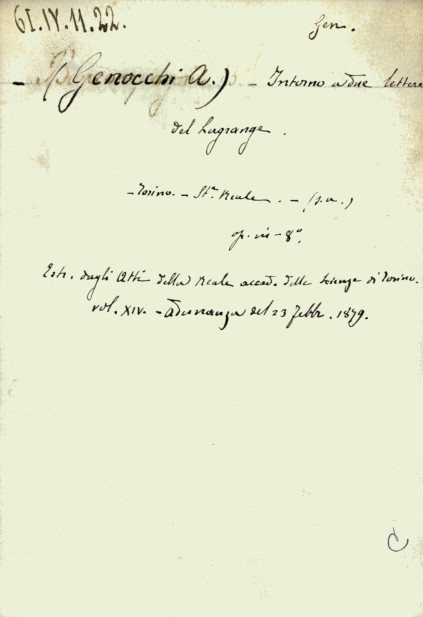 61.IV.11.22.
Gen.
(Genocchi A.) – Intorno a due lettere
del Lagrange.
– Torino. – St.ᵃ Reale. – (s.a.)
op. in – 8°.
Estr. dagli Atti della Reale accad. delle Scienze di Torino.
vol. XIV. – Adunanza del 23 Febbr. 1879.
C